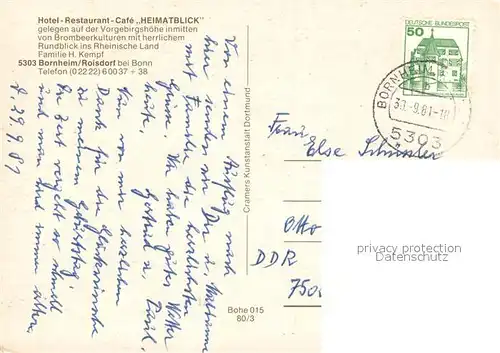 Hotel-Restaurant-Café „HEIMATBLICK"
gelegen auf der Vorgebirgshöhe inmitten
von Brombeerkulturen mit herrlichem
Rundblick ins Rheinische Land
Familie H. Kempf
5303 Bornheim/Roisdorf bei Bonn
Telefon (02222) 60037 + 38
Von einem Ausflug nach
hier senden wir Dir u.
mit Familie die herzlichsten
Grüße. Wir haben gutes Wetter
heute.
Nun von mir herzlichen
Dank für die Glückwünsche
zu meinem Geburtstag.
Die Zeit vergeht so schnell
und man wird immer älter.
29.9.81
Cramers Kunstanstalt Dortmund
Bohe 015
80/3
50
DEUTSCHE BUNDESPOST
BORNHEIM
5303
Frau
Else
Otto
DDR
750
privacy protection
Datenschutz